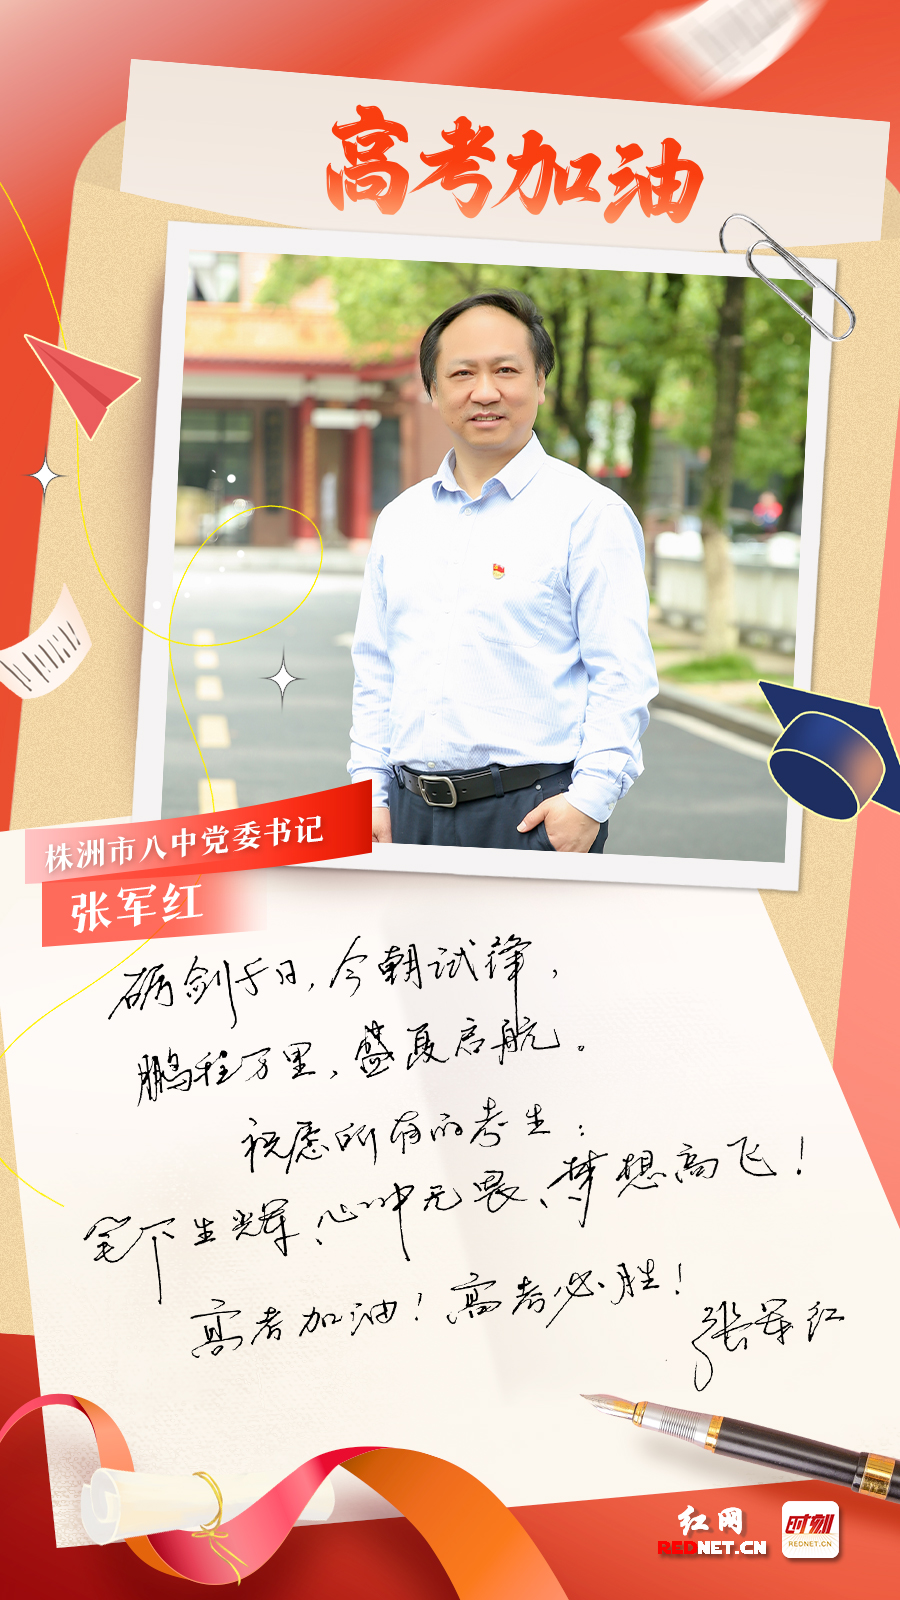 高考加油
株洲市八中党委书记
张军红
砺剑千日，今朝试锋，
鹏程万里，盛夏启航。
祝愿所有的考生：
笔下生辉、心中无畏、梦想高飞！
高考加油！高考必胜！
张军红
红网 时刻
REDNET.CN REDNET.CN